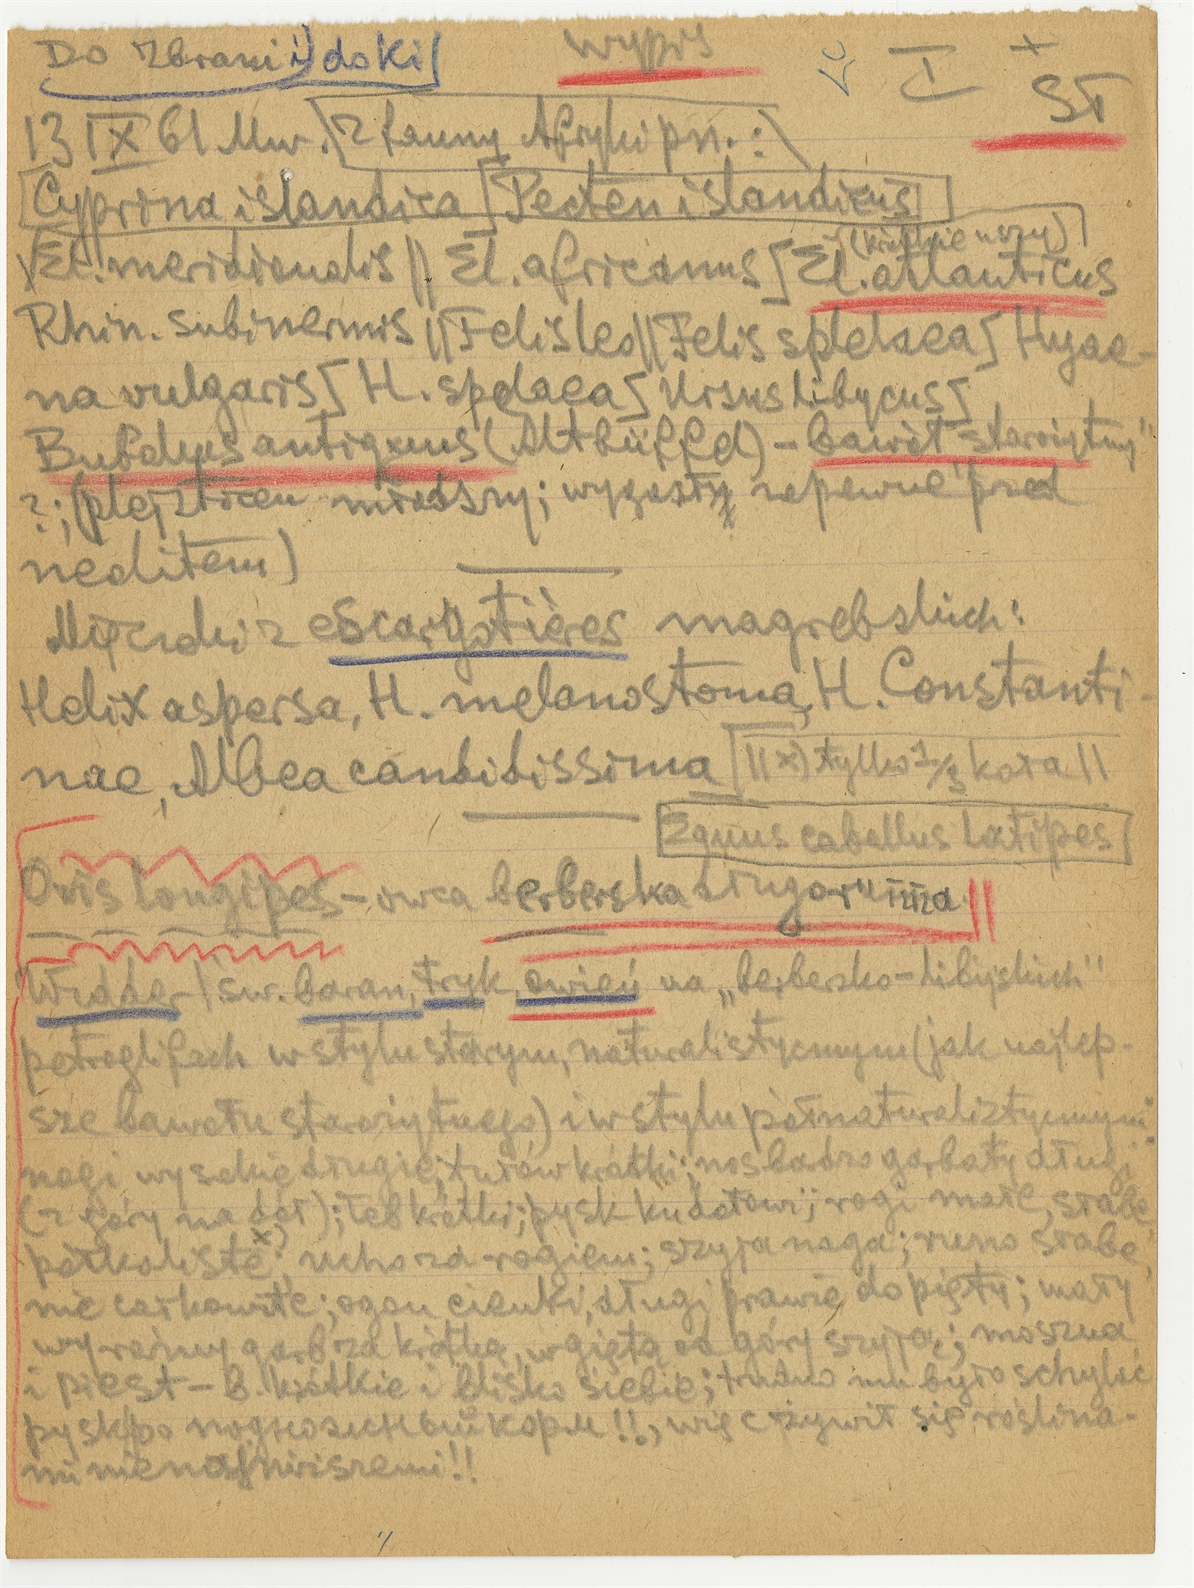 Do Zbrani i doki
wypis
I
ST
13 IX 61 Mw. z fauny Afryki pn.:
Cyprina islandica Pecten islandicus
(krótkie uszy)
El. meridionalis || El. africanus [ El. atlanticus
Rhin. subinermis || Felis leo || Felis spelaea [ Hyae-
na vulgaris [ H. spelaea [ Ursus libycus [
Bubalus antiquus (Altbüffel) – bawół starożytny"
?; (plejstocen młodszy; wygasły zapewne przed
neolitem)
Mięczaki z escargotières magrebskich:
Helix aspersa, H. melanostoma, H. Constanti-
nae, Albea candidissima || x) tylko 1/3 koła ||
Equus caballus latipes
Ovis longipes – owca berberska długo
Widder | sw. baran, tryk, owień na „berbersko-libijskich"
petroglifach w stylu starym, naturalistycznym (jak najlep-
sze bawołu starożytnego) i w stylu półnaturalistycznym:
nogi wysokie długie; tułów krótki; nos bardzo garbaty długi
(z góry na dół); łeb krótki; pysk rogi małe, słabe
półkoliste x); ucho za rogiem; szyja naga; runo słabe,
nie całkowite; ogon cienki, długi prawie do pięty; mały
wyraźny garb za krótką, wgiętą od góry szyją; moszna
i – b. krótkie i blisko siebie; trudno mu było schylać
pysk po подножный корм!!, więc żywił się roślina-
mi !!